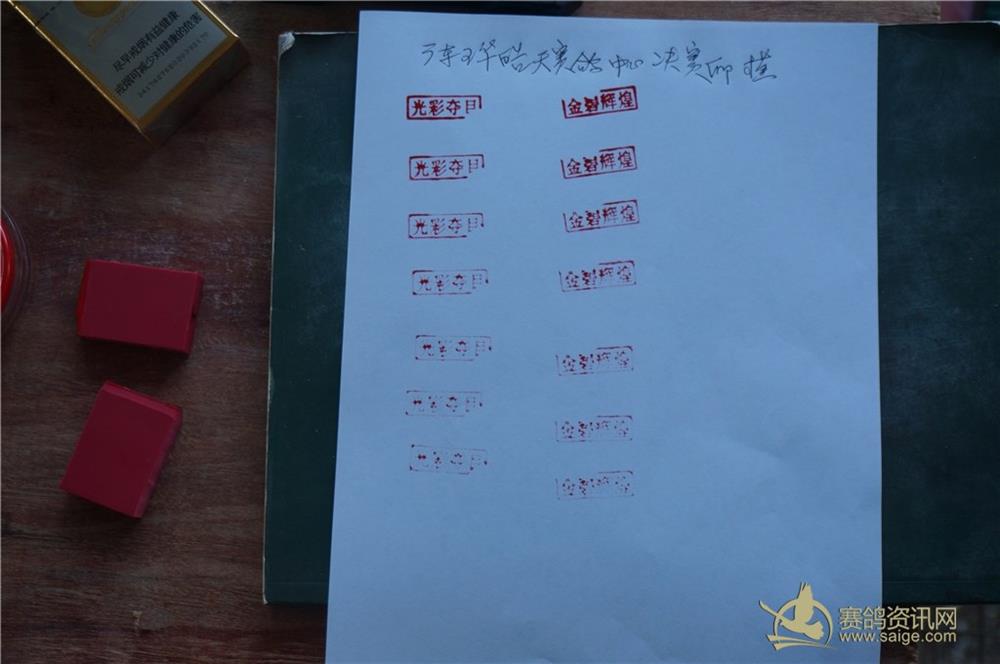 尽早戒烟有益健康
戒烟可减少对健康的危害
广东玤华皓天赛鸽中心决赛印模
光彩夺目 金碧辉煌
光彩夺目 金碧辉煌
光彩夺目 金碧辉煌
光彩夺目 金碧辉煌
光彩夺目 金碧辉煌
光彩夺目 金碧辉煌
光彩夺目 金碧辉煌
赛鸽资讯网
www.saige.com